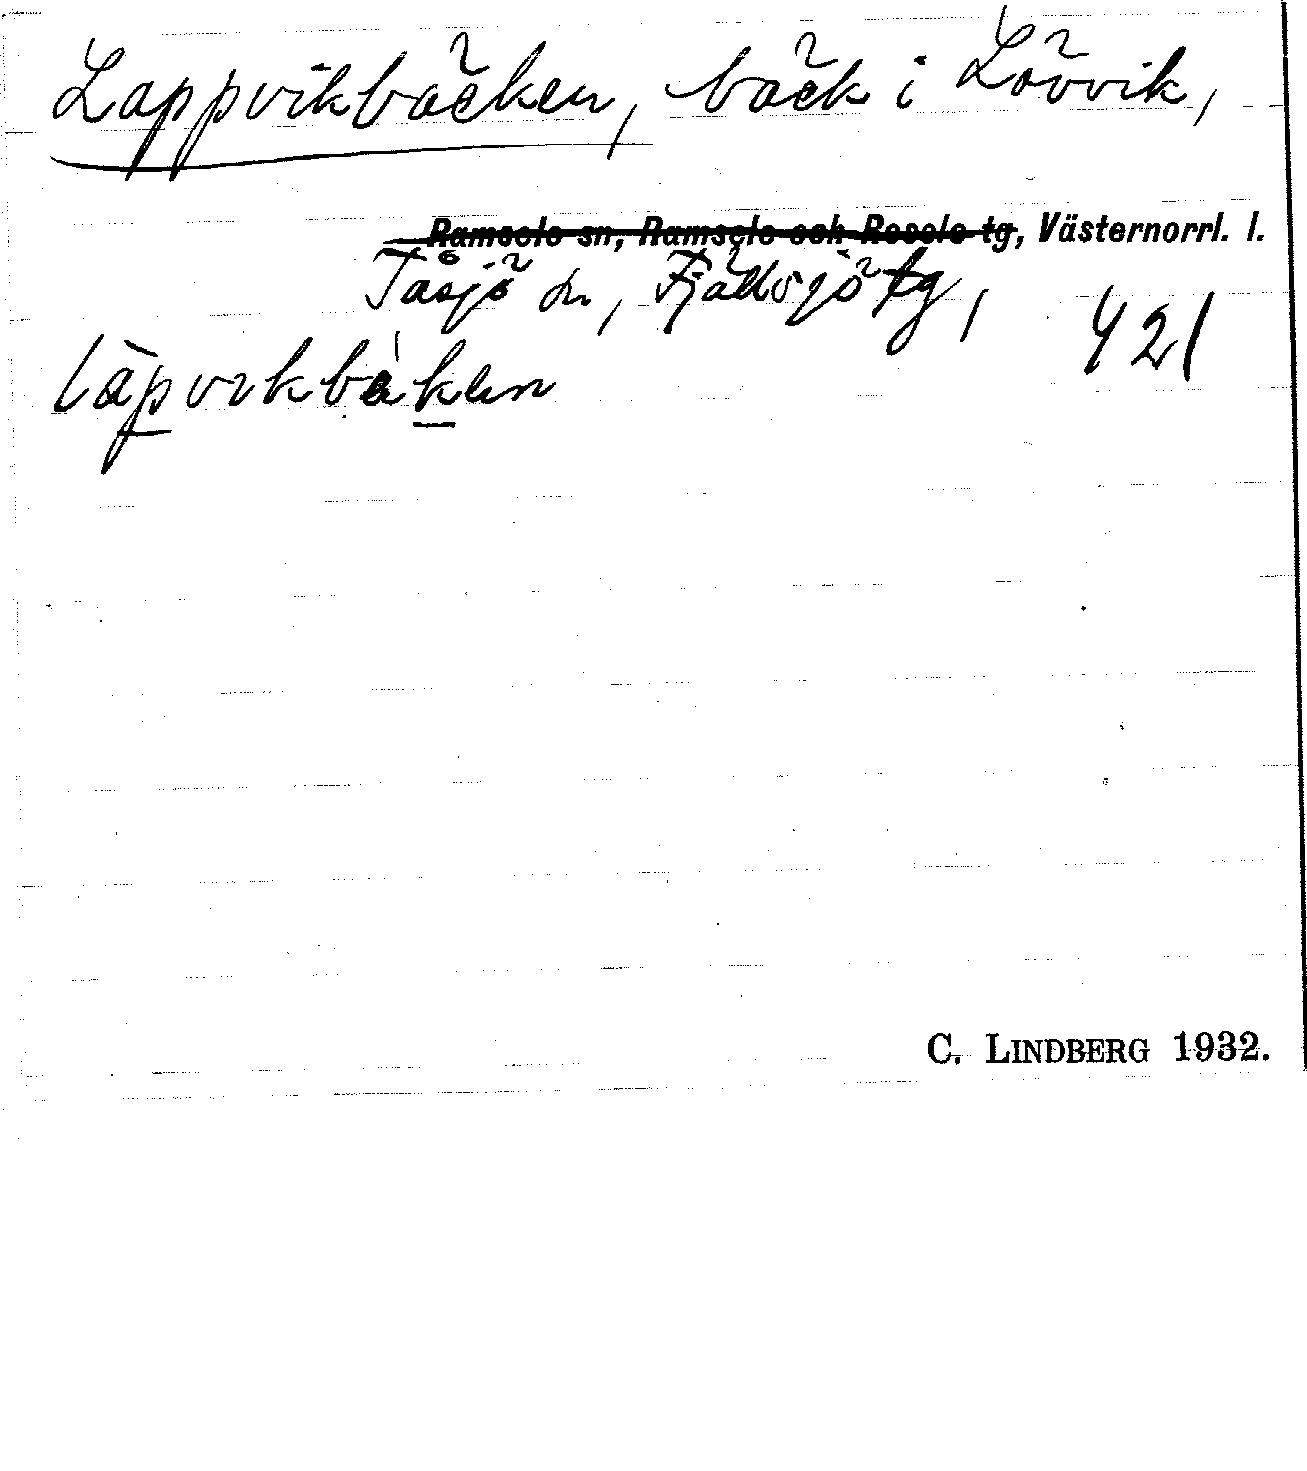 Lappvikbäcken, bäck i Lövvik,
Ramsele sn, Ramsele och Resele tg, Västernorrl. l.
Tåsjö sn, Fjällsjö tg,
421
làpvikbàken
C. LINDBERG 1932.